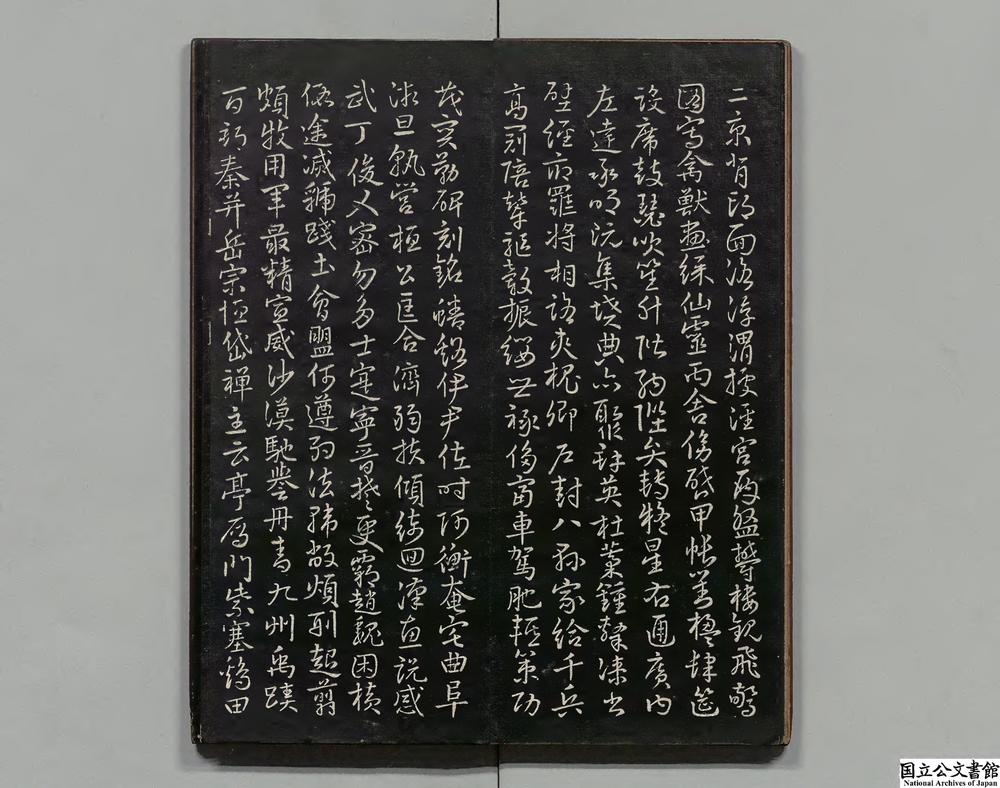 二京背邙面洛浮渭據涇宮殿盤鬱樓觀飛驚
圖寫禽獸畫綵仙靈丙舍傍啟甲帳對楹肆筵
設席鼓瑟吹笙升階納陛弁轉疑星右通廣內
左達承明既集墳典亦聚群英杜稾鍾隸漆書
壁經府羅將相路俠槐卿戶封八縣家給千兵
高冠陪輦驅轂振纓世祿侈富車駕肥輕策功
茂實勒碑刻銘磻谿伊尹佐時阿衡奄宅曲阜
微旦孰營桓公匡合濟弱扶傾綺迴漢惠說感
武丁俊乂密勿多士寔寧晉楚更霸趙魏困橫
假途滅虢踐土會盟何遵約法韓弊煩刑起翦
頗牧用軍最精宣威沙漠馳譽丹青九州禹蹟
百郡秦并岳宗恒岱禪主云亭雁門紫塞雞田
国立公文書館
National Archives of Japan